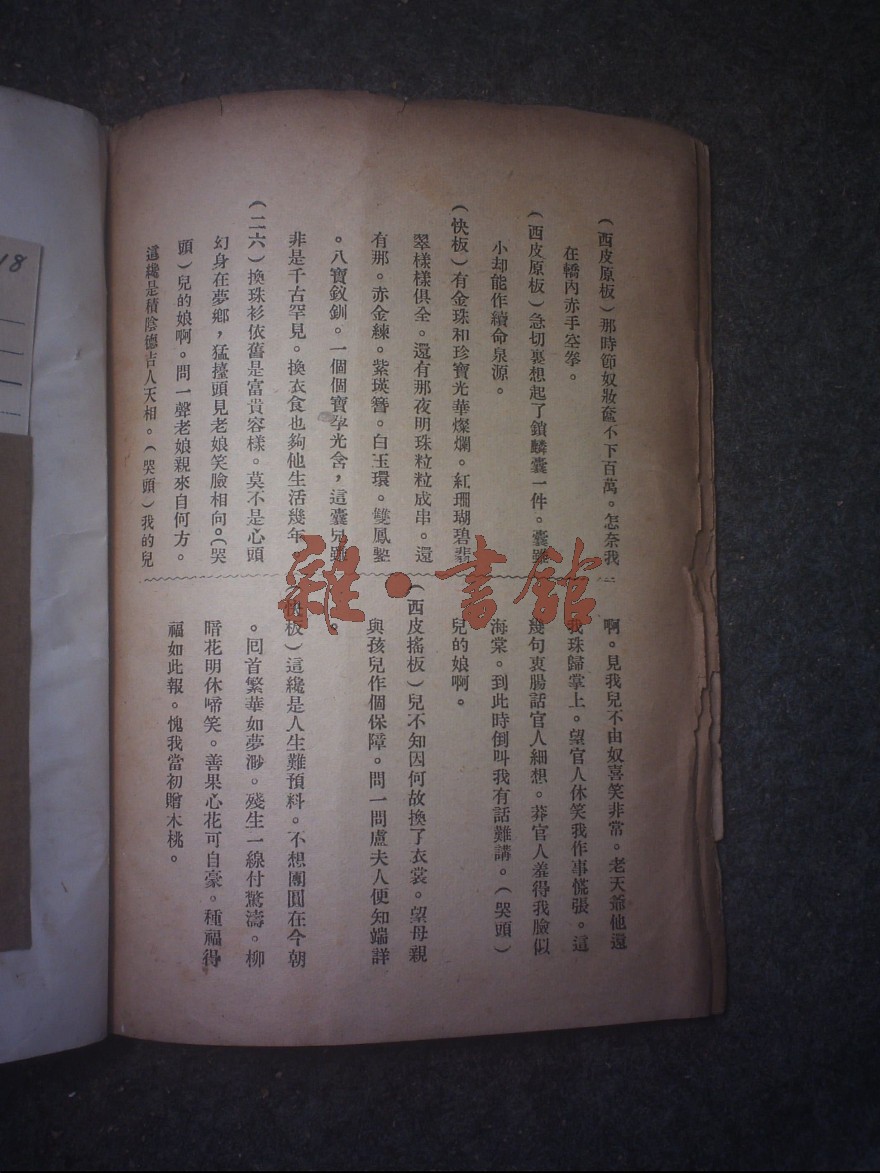 （西皮原板）那時節奴妝奩不下百萬。怎奈我
在轎內赤手空拳。
（西皮原板）急切裏想起了鎖麟囊一件。囊雖
小却能作續命泉源。
（快板）有金珠和珍寶光華燦爛。紅珊瑚碧翡
翠樣樣俱全。還有那夜明珠粒粒成串。還
有那。赤金練。紫瑛簪。白玉環。雙鳳鏨
。八寶釵釧。一個個寶孕光含，這囊兒雖
非是千古罕見。換衣食也夠他生活幾年。
（二六）換珠衫依舊是富貴容樣。莫不是心頭
幻身在夢鄉，猛擡頭見老娘笑臉相向。（哭
頭）兒的娘啊。問一聲老娘親來自何方。
這纔是積陰德吉人天相。（哭頭）我的兒
啊。見我兒不由奴喜笑非常。老天爺他還
我珠歸掌上。望官人休笑我作事慌張。這
幾句衷腸話官人細想。莽官人羞得我臉似
海棠。到此時倒叫我有話難講。（哭頭）
兒的娘啊。
（西皮搖板）兒不知因何故換了衣裳。望母親
與孩兒作個保障。問一問盧夫人便知端詳
。
（快板）這纔是人生難預料。不想團圓在今朝
。回首繁華如夢渺。殘生一線付驚濤。柳
暗花明休啼笑。善果心花可自豪。種福得
福如此報。愧我當初贈木桃。
雜·書館
18